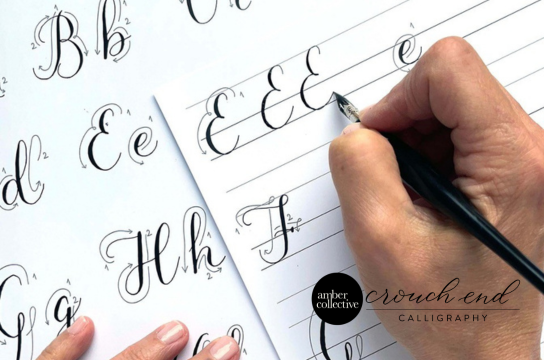 B b
E e
d
H h
G g
E E E e
F
amber
collective
crouch end
CALLIGRAPHY